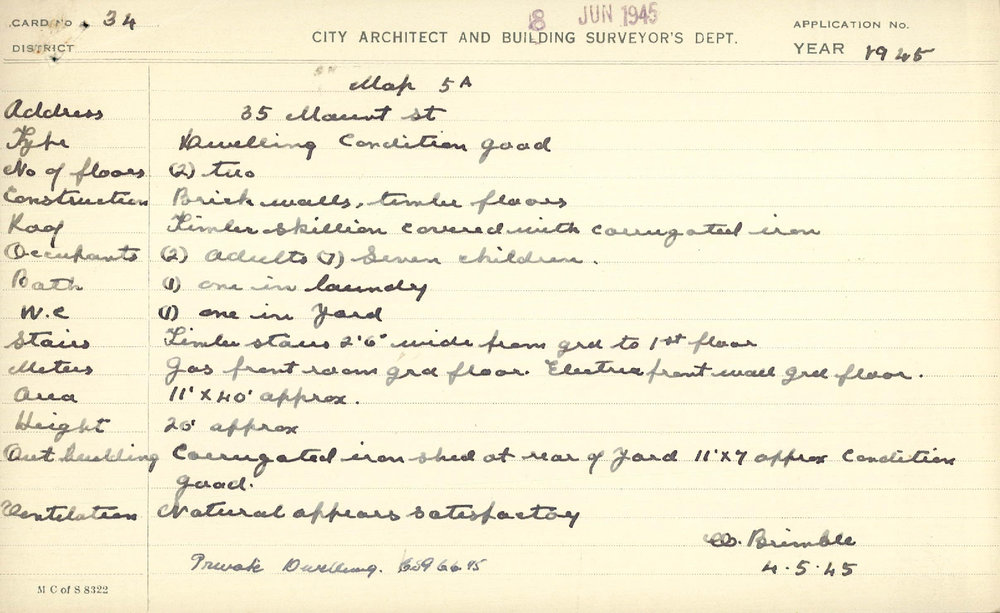 CARD No. 34
8 JUN 1945
APPLICATION No.
DISTRICT
CITY ARCHITECT AND BUILDING SURVEYOR'S DEPT.
YEAR 1945
Map 5A
Address 35 Mount st
Type Dwelling Condition good
No of floors (2) two
Construction Brick walls, timber floors
Roof Timber skillion covered with corrugated iron
Occupants (2) adults (7) Seven children.
Bath (1) one in laundry
W.C (1) one in Yard
Stairs Timber stairs 2'6" wide from grd to 1st floor
Meters Gas front room grd floor. Electric front wall grd floor.
Area 11' x 40' approx.
Height 20' approx
Out building Corrugated iron shed at rear of Yard 11' x 7 approx Condition
good.
Ventilation Natural appears satisfactory
Brimble
Private Dwelling.
4.5.45
M C of S 8322